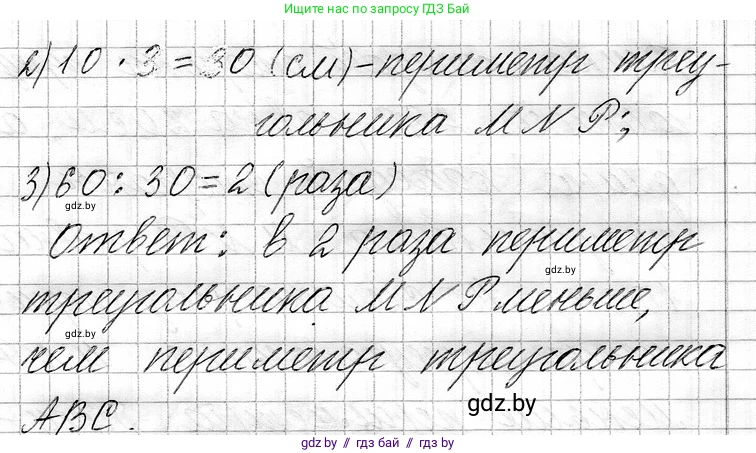 Ищите нас по запросу ГДЗ Бай
2) 10 · 3 = 30 (см) – периметр треу-
гольника MNP;
3) 60 : 30 = 2 (раза)
gdz.by
Ответ: в 2 раза периметр
gdz.by
треугольника MNP меньше,
gdz.by
чем периметр треугольника
gdz.by
ABC.
gdz.by // гдз бай // гдз by